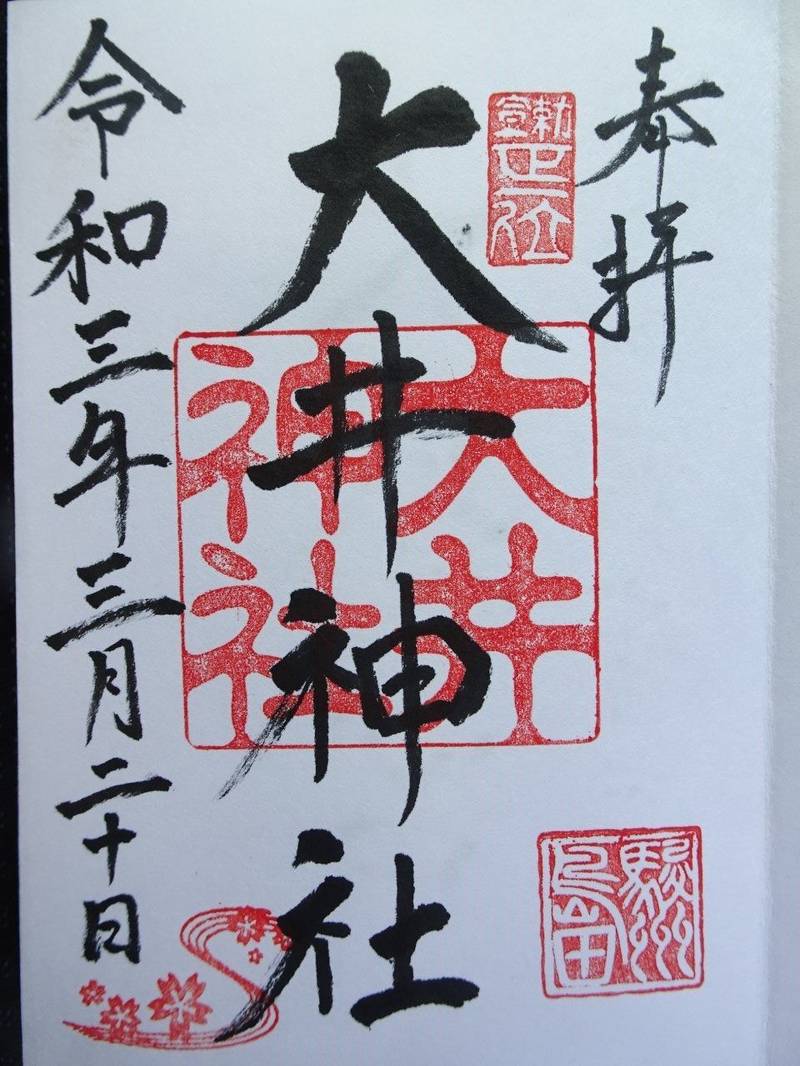 奉拝
勅宣
正一位
大井神社
大井
神社
駿州
島田
令和三年三月二十日